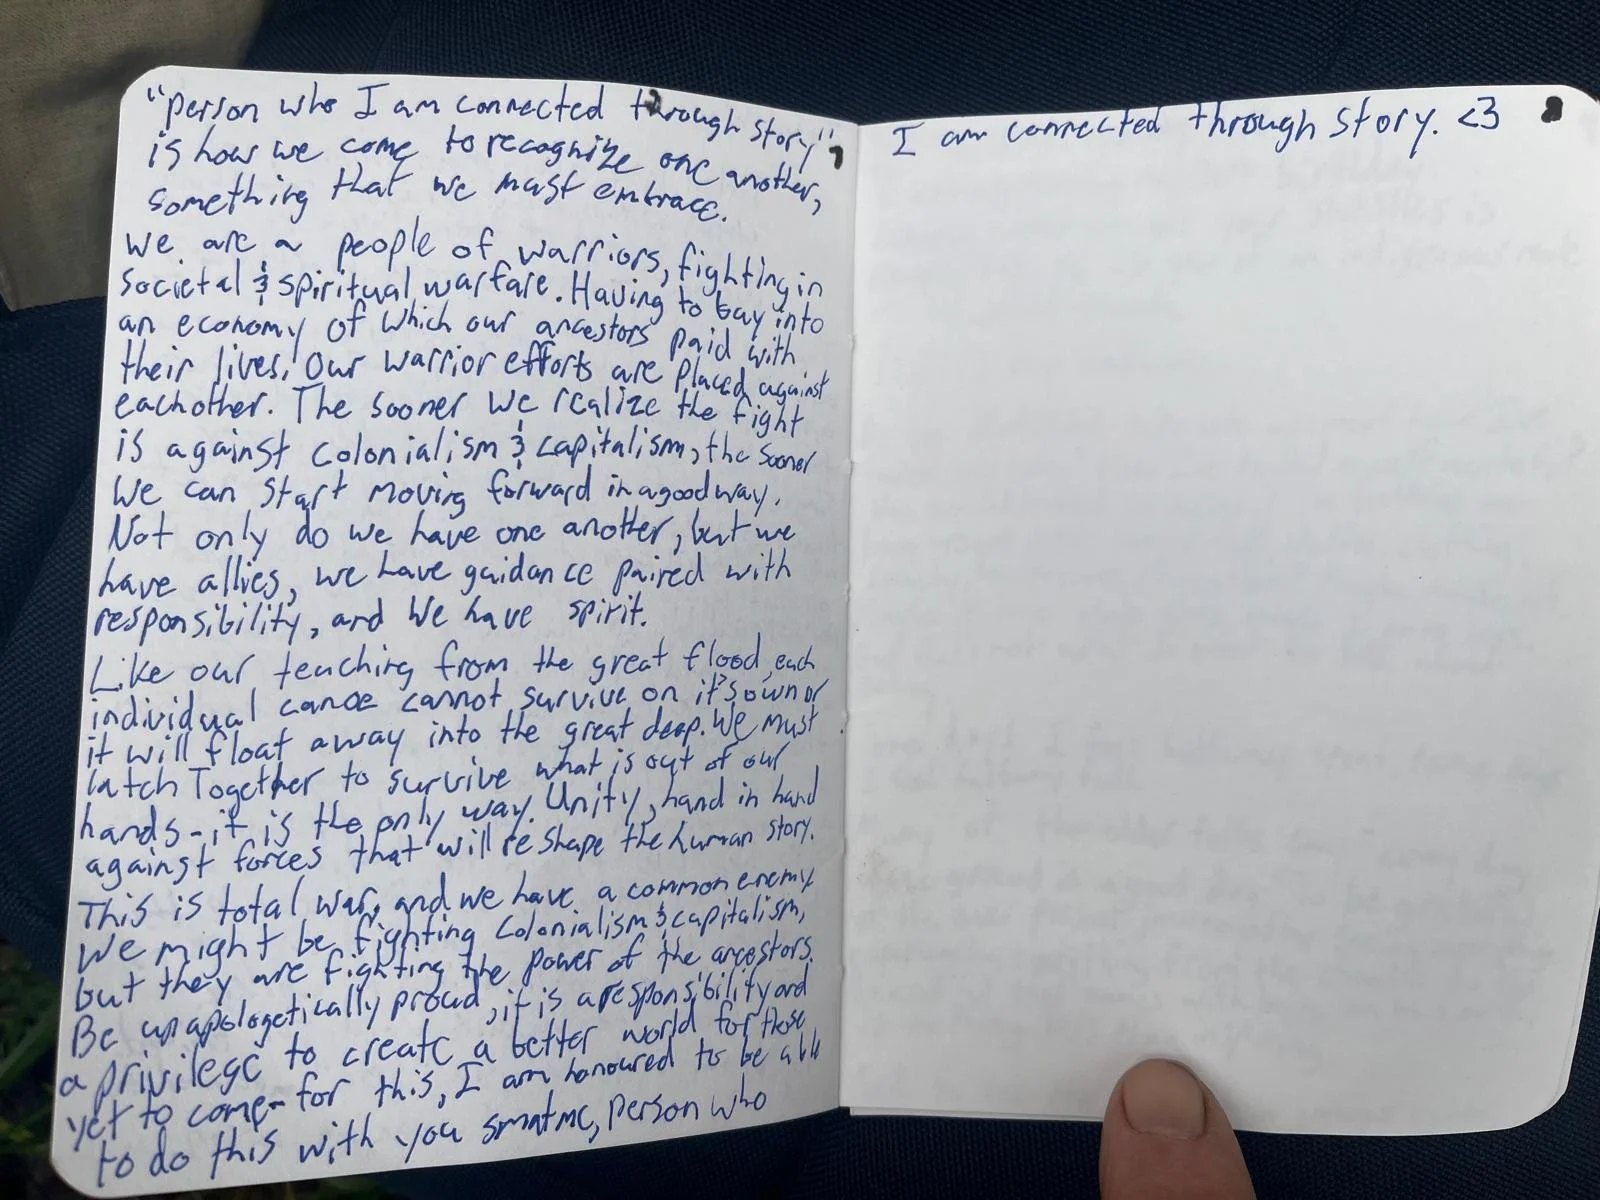 "person who I am connected through story",
is how we come to recognize one another,
something that we must embrace.
We are a people of warriors, fighting in
societal & spiritual warfare. Having to buy into
an economy of which our ancestors paid with
their lives. Our warrior efforts are placed against
eachother. The sooner we realize the fight
is against colonialism & capitalism, the sooner
we can start moving forward in a good way.
Not only do we have one another, but we
have allies, we have guidance paired with
responsibility, and we have spirit.
Like our teaching from the great flood, each
individual canoe cannot survive on it's own or
it will float away into the great deep. We must
latch Together to survive what is out of our
hands - it is the only way. Unity, hand in hand
against forces that will reshape the human story.
This is total war, and we have a common enemy
We might be fighting colonialism & capitalism,
but they are fighting the power of the ancestors.
Be unapologetically proud, it is a responsibility and
a privilege to create a better world for those
yet to come - for this, I am honoured to be able
to do this with you smatmc, person who
I am connected through story. <3